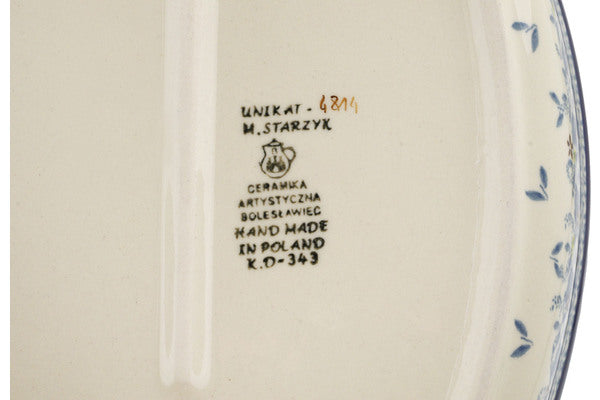 UNIKAT - 4814
M. STARZYK
CERAMIKA
ARTYSTYCZNA
BOLESŁAWIEC
HAND MADE
IN POLAND
K.D-343